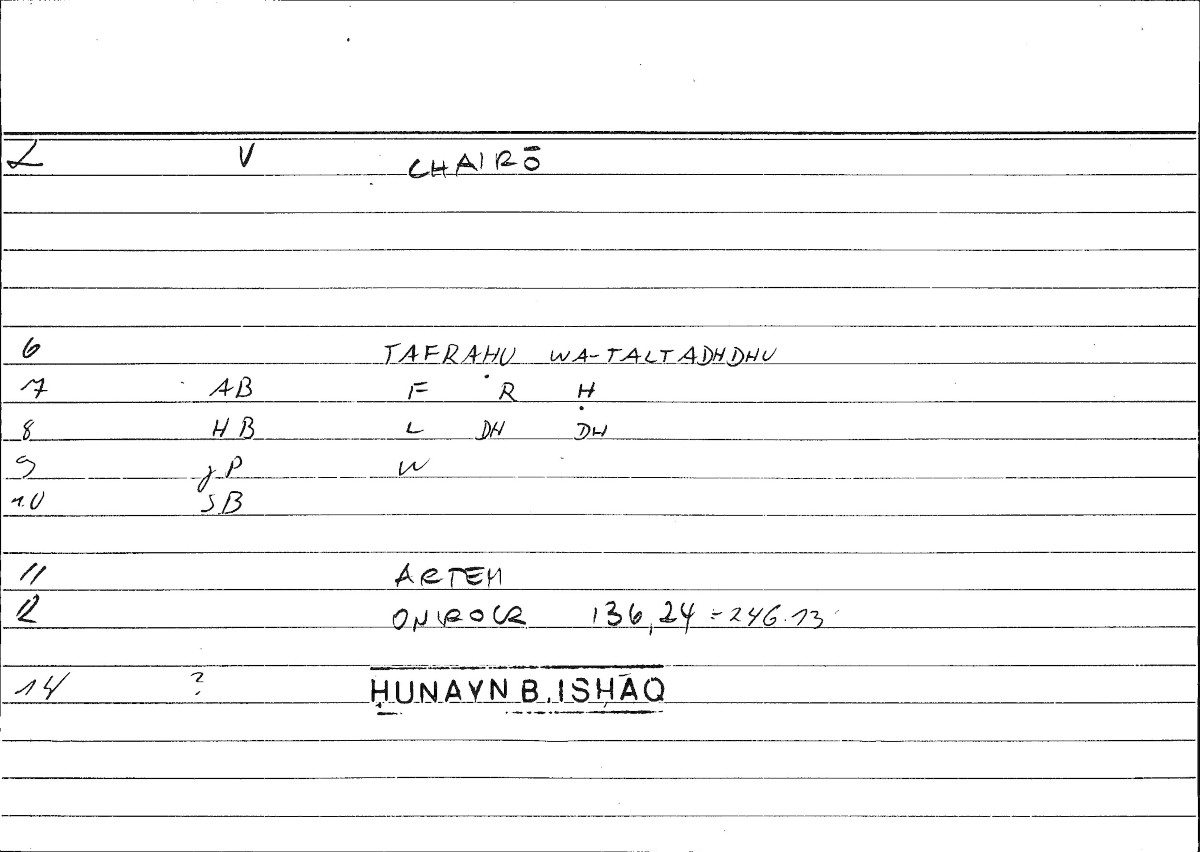 L V CHAIRŌ
6 TAFRAḤU WA-TALTADHDHU
7 AB F R Ḥ
8 HB L DH DH
9 JP W
10 SB
11 ARTEM
12 ONIROCR 136,24 = 246.13
14 ? ḤUNAYN B. ISḤĀQ